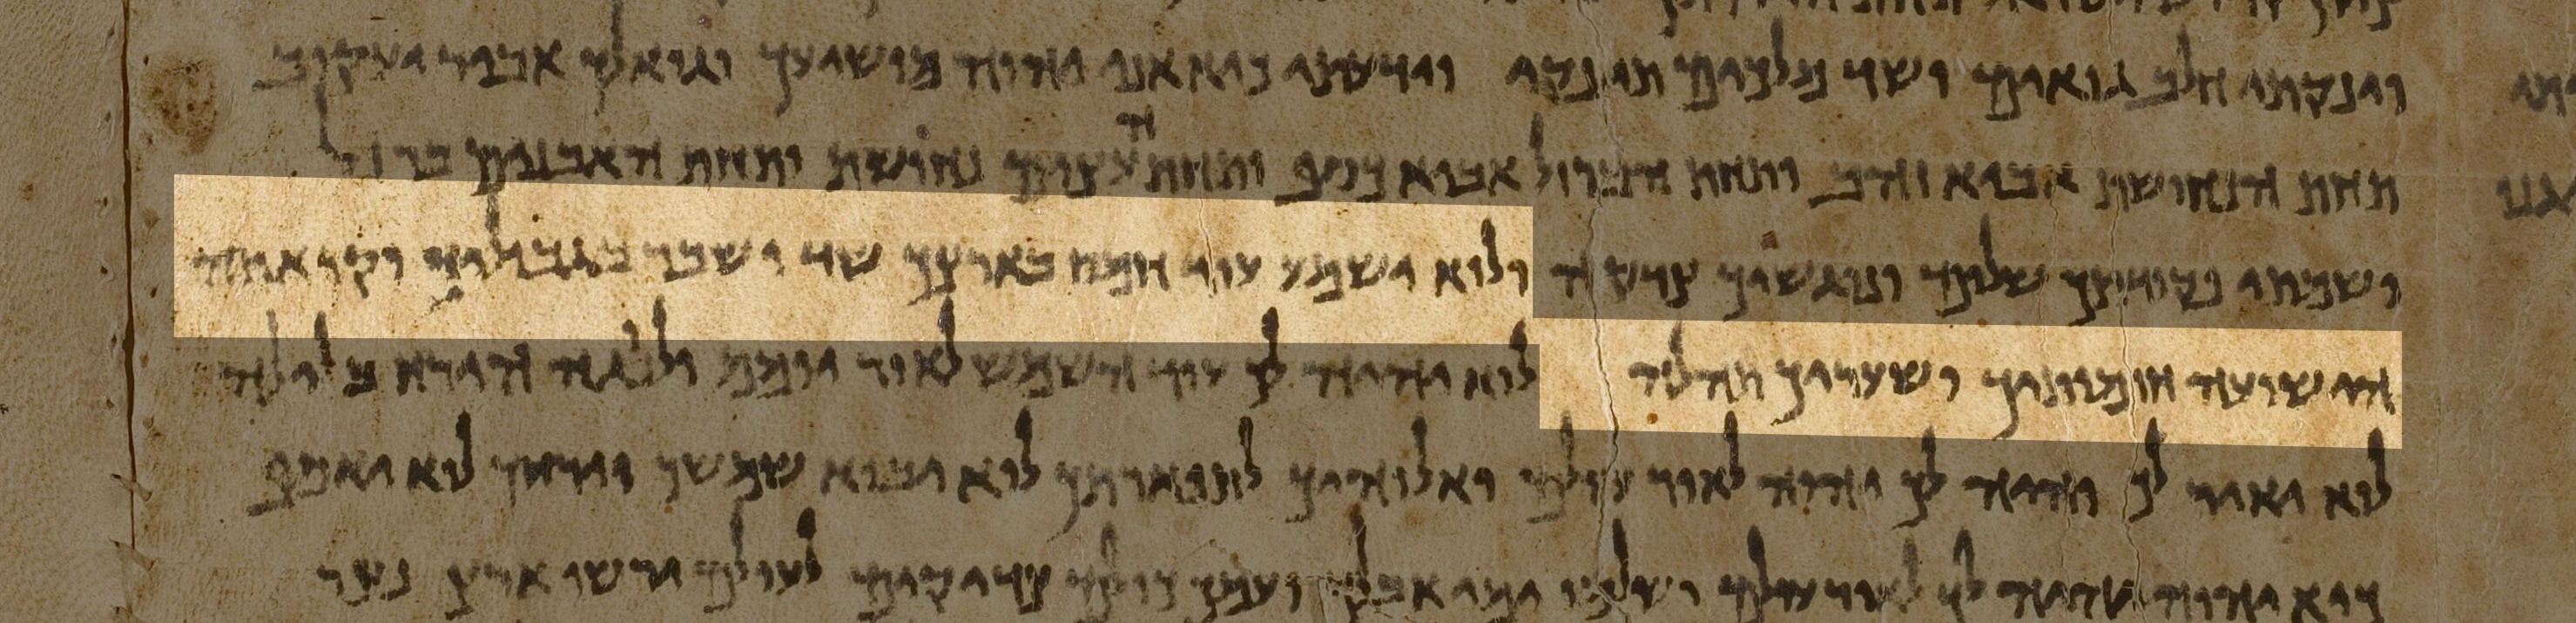 וינקתי חלב גואים ושד מלכים תינקי וידעתי כיא אני יהוה מושיעך וגואלך אביר יעקוב
תחת הנחושת אביא זהב ותחת הברזל אביא כסף ותחת העצים נחושת ותחת האבנים ברזל
ושמתי פקודתך שלום ונוגשיך צדקה ולוא ישמע עוד חמס בארצך שד ושבר בגבוליך וקראתה
הישועה חומותיך ושעריך תהלה לוא יהיה לך עוד השמש לאור יומם ולנוגה הירח בלילה
לוא יאיר לך והיה לך יהוה לאור עולם ואלוהיך לתפארתך לוא יבוא שמשך וירחך לוא יאסף
כיא יהוה יהיה לך לאור עולם ושלמו ימי אבלך ועמך כולם צדיקים לעולם ירשו ארץ נצר